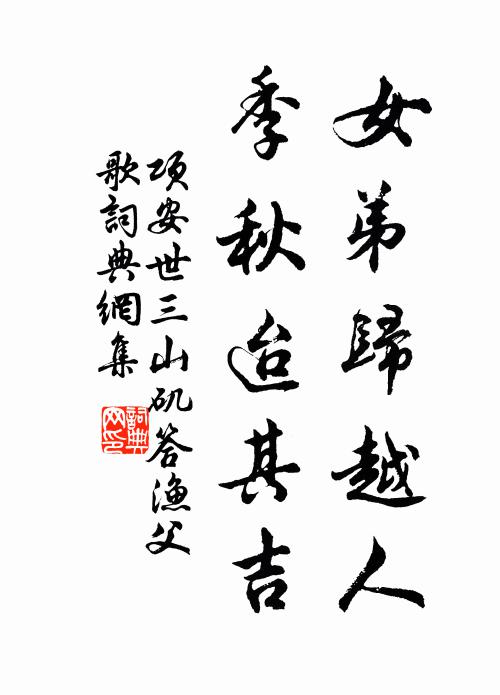 女弟歸越人
季秋迨其吉
項安世三山矶答漁父
歌詞典網集
詞典网印